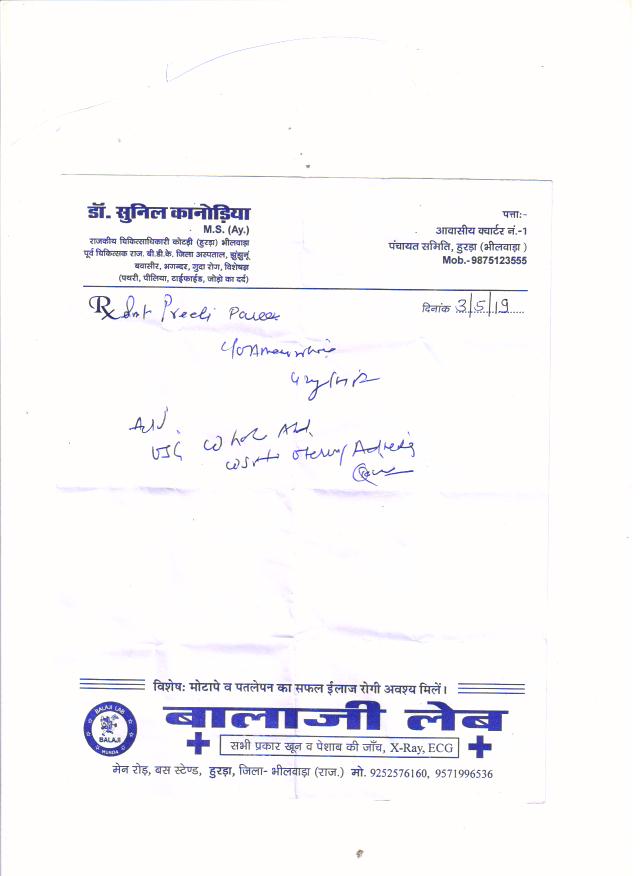 डॉ. सुनिल कानोड़िया
M.S. (Ay.)
राजकीय चिकित्साधिकारी कोटड़ी (हुरड़ा) भीलवाड़ा
पूर्व चिकित्सक राज. बी.डी.के. जिला अस्पताल, झुंझुनूं
बवासीर, भगन्दर, गुदा रोग, विशेषज्ञ
(पथरी, पीलिया, टाईफाईड, जोड़ो का दर्द)
पता:-
आवासीय क्वार्टर नं.-1
पंचायत समिति, हुरड़ा (भीलवाड़ा )
Mob.-9875123555
Rx Smt Preeti
दिनांक 3/5/19
Adv.
USG whole Abd.
विशेष: मोटापे व पतलेपन का सफल ईलाज रोगी अवश्य मिलें।
BALAJI LAB
BALAJI
HURDA
बालाजी लेब
सभी प्रकार खून व पेशाब की जाँच, X-Ray, ECG
मेन रोड़, बस स्टेण्ड, हुरड़ा, जिला- भीलवाड़ा (राज.) मो. 9252576160, 9571996536